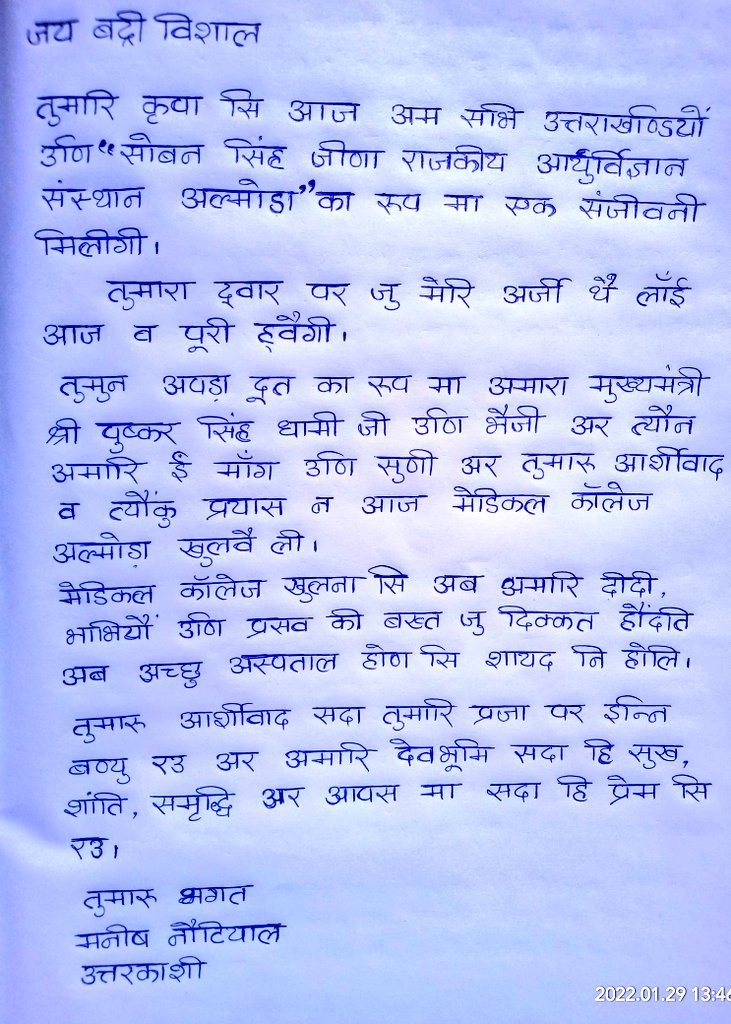 जय बद्री विशाल
तुमारि कृपा सि आज अम सभि उत्तराखण्डियों
उणि “सोबन सिंह जीणा राजकीय आर्युर्विज्ञान
संस्थान अल्मोड़ा” का रूप मा एक संजीवनी
मिलीगी।
तुमारा द्वार पर जु मेरि अर्जी थै लाँई
आज व पूरी ह्वैगी।
तुमुन अपड़ा दूत का रूप मा अमारा मुख्यमंत्री
श्री पुष्कर सिंह धामी जी उणि भैजी अर त्यौन
अमारि ईं माँग उणि सुणी अर तुमारू आर्शीवाद
व त्यौंकु प्रयास न आज मेडिकल कॉलेज
अल्मोड़ा खुलवै ली।
मेडिकल कॉलेज खुलना सि अब अमारि दीदी,
भाभियौं उणि प्रसव की बख्त जु दिक्कत हौंदति
अब अच्छु अस्पताल होण सि शायद नि होलि।
तुमारू आर्शीवाद सदा तुमारि प्रजा पर इन्नि
बण्यु रउ अर अमारि देवभूमि सदा हि सुख,
शांति, समृद्धि अर आपस मा सदा हि प्रेम सि
रउ।
तुमारू भगत
मनीष नौटियाल
उत्तरकाशी
2022.01.29 13:46